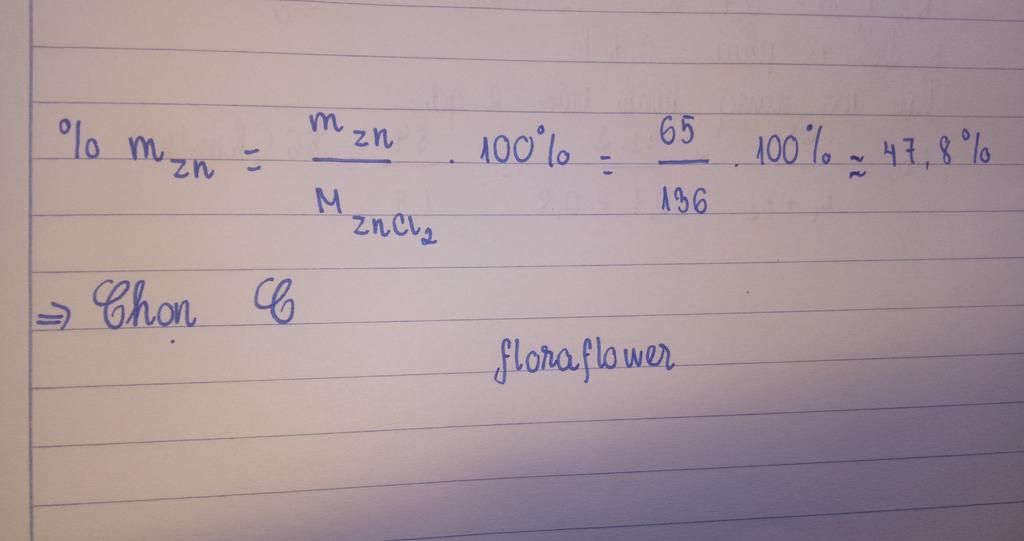 % m_Zn = m_Zn / M_ZnCl₂ . 100% = 65 / 136 . 100% ≈ 47,8%
⇒ Chọn C
floraflower